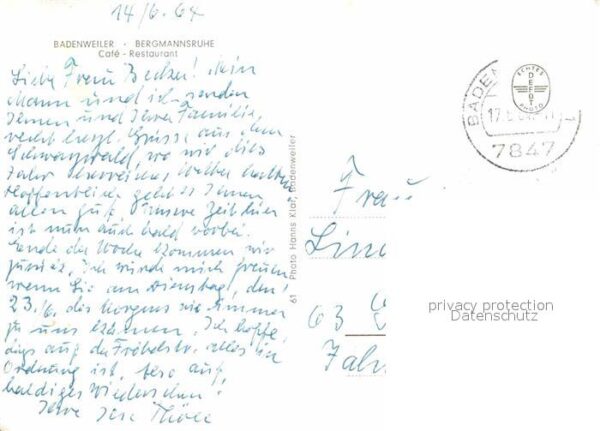 14/6.64
BADENWEILER · BERGMANNSRUHE
Café - Restaurant
Liebe Frau Becker! Mein
Mann und ich senden
Ihnen und Ihrer Familie
recht herzl. Grüsse aus dem
Schwarzwald, wo wir dies
Jahr herrliches Wetter hatten
Hoffentlich geht es Ihnen
allen gut. Unsere Zeit hier
ist nun auch bald vorbei.
Ende der Woche kommen wir
zurück. Ich würde mich freuen
wenn Sie am Dienstag, den
23./6. des Morgens wie immer
zu uns kommen. Ich hoffe,
das auf der Fröbelstr. alles in
Ordnung ist. Also auf
baldiges Wiedersehen!
Ihre
61 Photo Hanns Klar, Badenweiler
BADEN
17.
7847
ECHTES
DEFOT
PHOTO
Frau
Lin
63
Fahr
privacy protection
Datenschutz